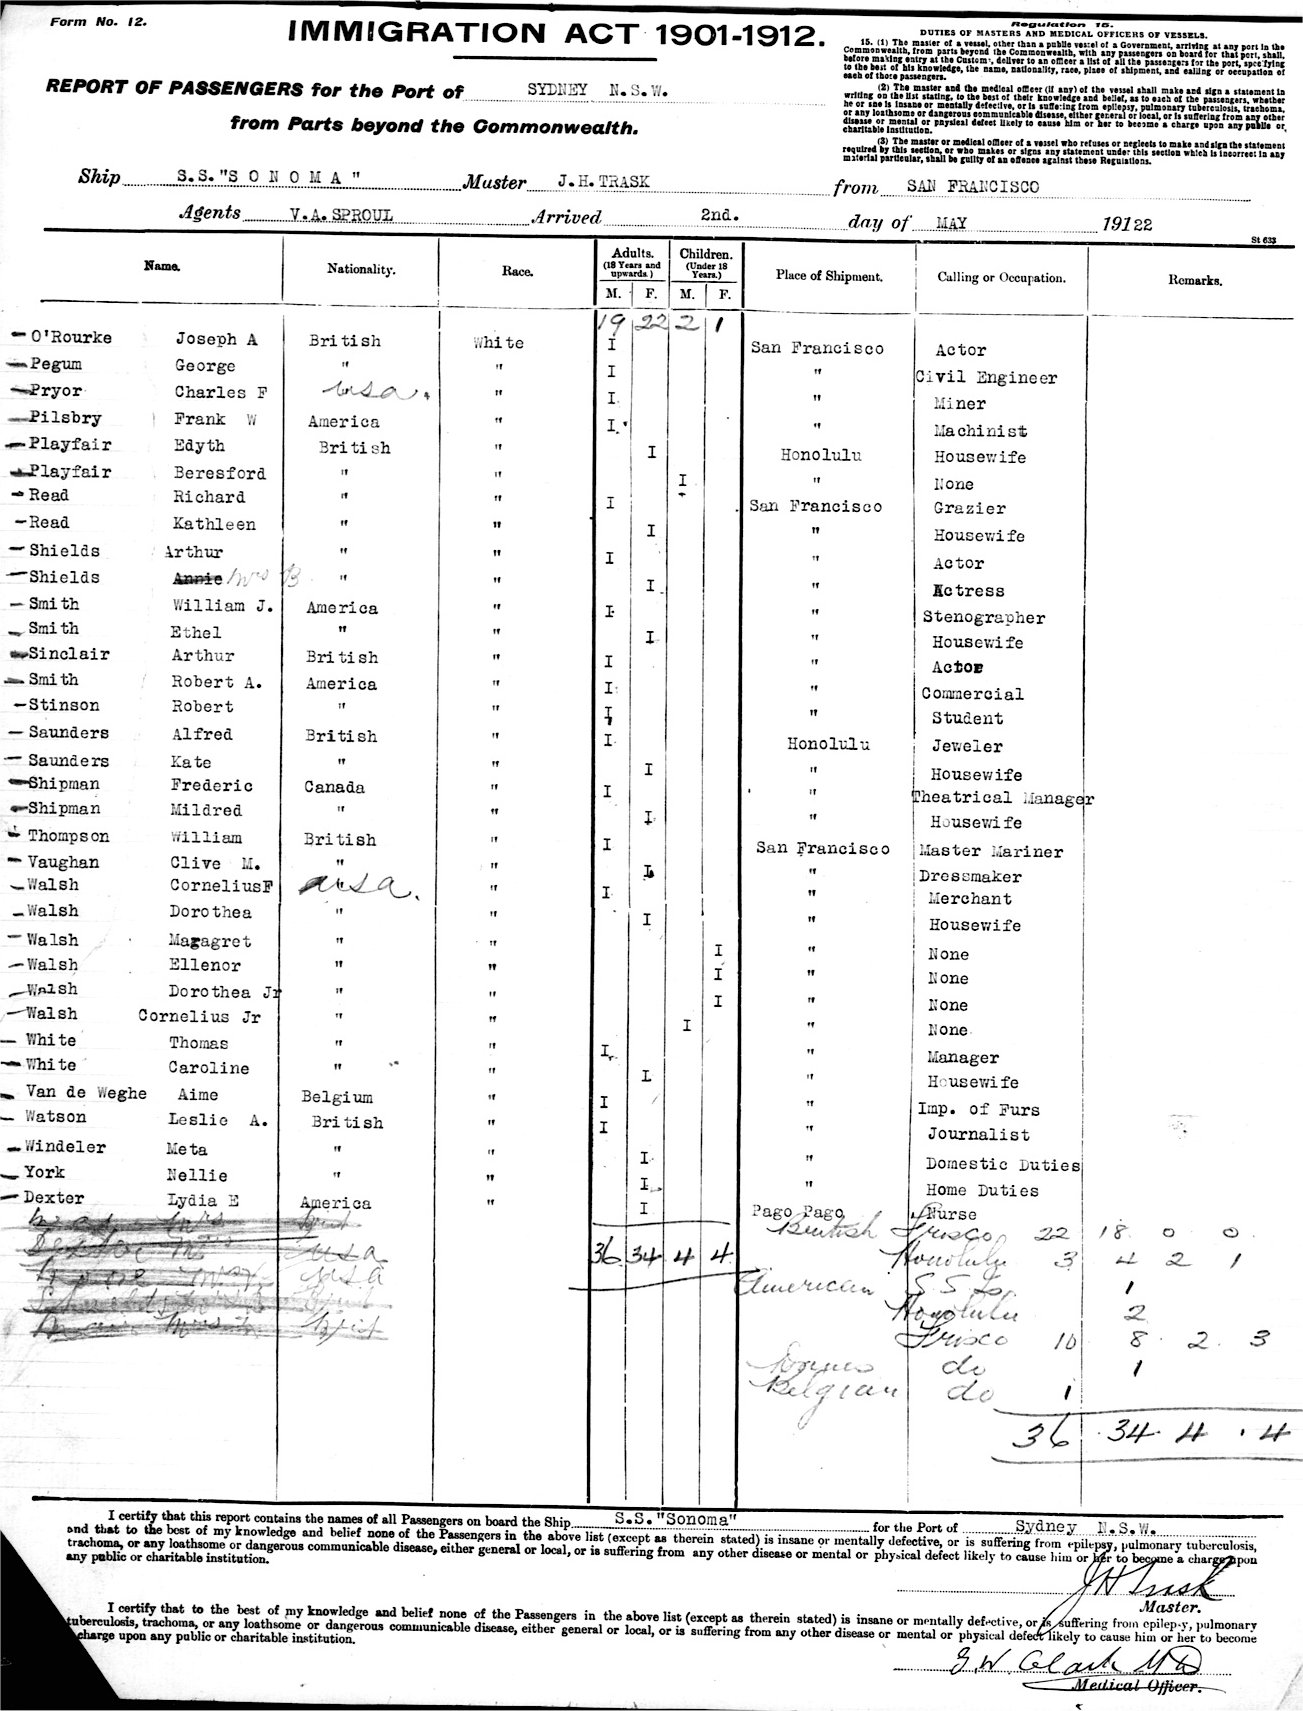 Form No. 12.
IMMIGRATION ACT 1901-1912.
REPORT OF PASSENGERS for the Port of SYDNEY N.S.W.
from Parts beyond the Commonwealth.
Regulation 15.
DUTIES OF MASTERS AND MEDICAL OFFICERS OF VESSELS.
15. (1) The master of a vessel, other than a public vessel of a Government, arriving at any port in the
Commonwealth, from parts beyond the Commonwealth, with any passengers on board for that port, shall,
before making entry at the Customs, deliver to an officer a list of all the passengers for the port, specifying
to the best of his knowledge, the name, nationality, race, place of shipment, and calling or occupation of
each of those passengers.
(2) The master and the medical officer (if any) of the vessel shall make and sign a statement in
writing on the list stating, to the best of their knowledge and belief, as to each of the passengers, whether
he or she is insane or mentally defective, or is suffering from epilepsy, pulmonary tuberculosis, trachoma,
or any loathsome or dangerous communicable disease, either general or local, or is suffering from any other
disease or mental or physical defect likely to cause him or her to become a charge upon any public or
charitable institution.
(3) The master or medical officer of a vessel who refuses or neglects to make and sign the statement
required by this section, or who makes or signs any statement under this section which is incorrect in any
material particular, shall be guilty of an offence against these Regulations.
Ship S.S."S O N O M A" Master J.H.TRASK from SAN FRANCISCO
Agents V.A.SPROUL Arrived 2nd. day of MAY 19122
St 633
Name. Nationality. Race. Adults. (18 Years and upwards.) Children. (Under 18 Years.) Place of Shipment. Calling or Occupation. Remarks.
M. F. M. F.
19 22 2 1
O'Rourke Joseph A British White I San Francisco Actor
Pegum George " " I " Civil Engineer
Pryor Charles F usa. " I " Miner
Pilsbry Frank W America " I " Machinist
Playfair Edyth British " I Honolulu Housewife
Playfair Beresford " " I " None
Read Richard " " I San Francisco Grazier
Read Kathleen " " I " Housewife
Shields Arthur " " I " Actor
Shields Annie Mrs B " " I " Actress
Smith William J. America " I " Stenographer
Smith Ethel " " I " Housewife
Sinclair Arthur British " I " Actor
Smith Robert A. America " I " Commercial
Stinson Robert " " I " Student
Saunders Alfred British " I Honolulu Jeweler
Saunders Kate " " I " Housewife
Shipman Frederic Canada " I " Theatrical Manager
Shipman Mildred " " I " Housewife
Thompson William British " I San Francisco Master Mariner
Vaughan Clive M. " " I " Dressmaker
Walsh CorneliusF usa. " I " Merchant
Walsh Dorothea " " I " Housewife
Walsh Maragret " " I " None
Walsh Ellenor " " I " None
Walsh Dorothea Jr " " I " None
Walsh Cornelius Jr " " I " None
White Thomas " " I " Manager
White Caroline " " I " Housewife
Van de Weghe Aime Belgium " I " Imp. of Furs
Watson Leslie A. British " I " Journalist
Windeler Meta " " I " Domestic Duties
York Nellie " " I " Home Duties
Dexter Lydia E America " I Pago Pago Nurse
British Frisco 22 18 0 0
usa 36 34 4 4 Honolulu 3 4 2 1
usa American 1
Honolulu 2
Frisco 10 8 2 3
do 1
Belgian do 1
36 34 4 4
I certify that this report contains the names of all Passengers on board the Ship S.S."Sonoma" for the Port of Sydney N.S.W.
and that to the best of my knowledge and belief none of the Passengers in the above list (except as therein stated) is insane or mentally defective, or is suffering from epilepsy, pulmonary tuberculosis,
trachoma, or any loathsome or dangerous communicable disease, either general or local, or is suffering from any other disease or mental or physical defect likely to cause him or her to become a charge upon
any public or charitable institution.
JH Trask
Master.
I certify that to the best of my knowledge and belief none of the Passengers in the above list (except as therein stated) is insane or mentally defective, or is suffering from epilepsy, pulmonary
tuberculosis, trachoma, or any loathsome or dangerous communicable disease, either general or local, or is suffering from any other disease or mental or physical defect likely to cause him or her to become
charge upon any public or charitable institution.
G W Clark MD
Medical Officer.